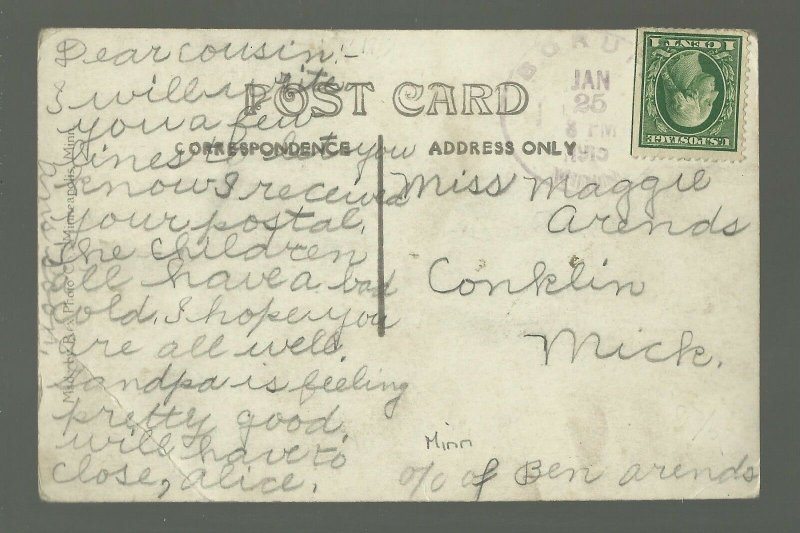 Dear cousin:-
I will write
you a few
lines to let you
know I received
your postal.
The children
all have a bad
cold. I hope you
are all well.
Grandpa is feeling
pretty good
will have to
close, alice.
POST CARD
CORRESPONDENCE
ADDRESS ONLY
Miss Maggie
Arends
Conklin
Mick.
Minn
c/o of Ben arends
JAN
25
8 PM
1 CENT 1
U.S. POSTAGE
Photo Minneapolis, Minn.